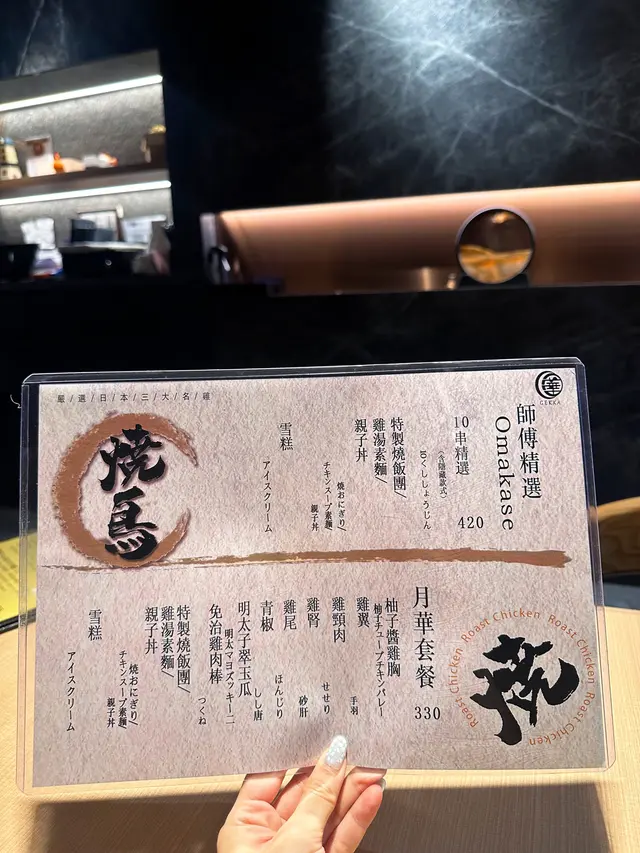 嚴/選/日/本/三/大/名/雞
GEKKA
師傅精選
Omakase
420
10串精選
(含隱藏款式)
10くししょうじん
特製燒飯團/
雞湯素麵/
親子丼
焼おにぎり/
チキンスープ素麺/
親子丼
雪糕
アイスクリーム
燒鳥
月華套餐
330
柚子醬雞胸
柚子チューブチキンバレー
雞翼
手羽
雞頸肉
せせり
雞腎
砂肝
雞尾
ほんじり
青椒
しし唐
明太子翠玉瓜
明太マヨズッキーニ
免治雞肉棒
つくね
特製燒飯團/
雞湯素麵/
親子丼
焼おにぎり/
チキンスープ素麺/
親子丼
雪糕
アイスクリーム
Roast Chicken Roast Chicken Roast Chicken Roast Chicken Roast Chicken